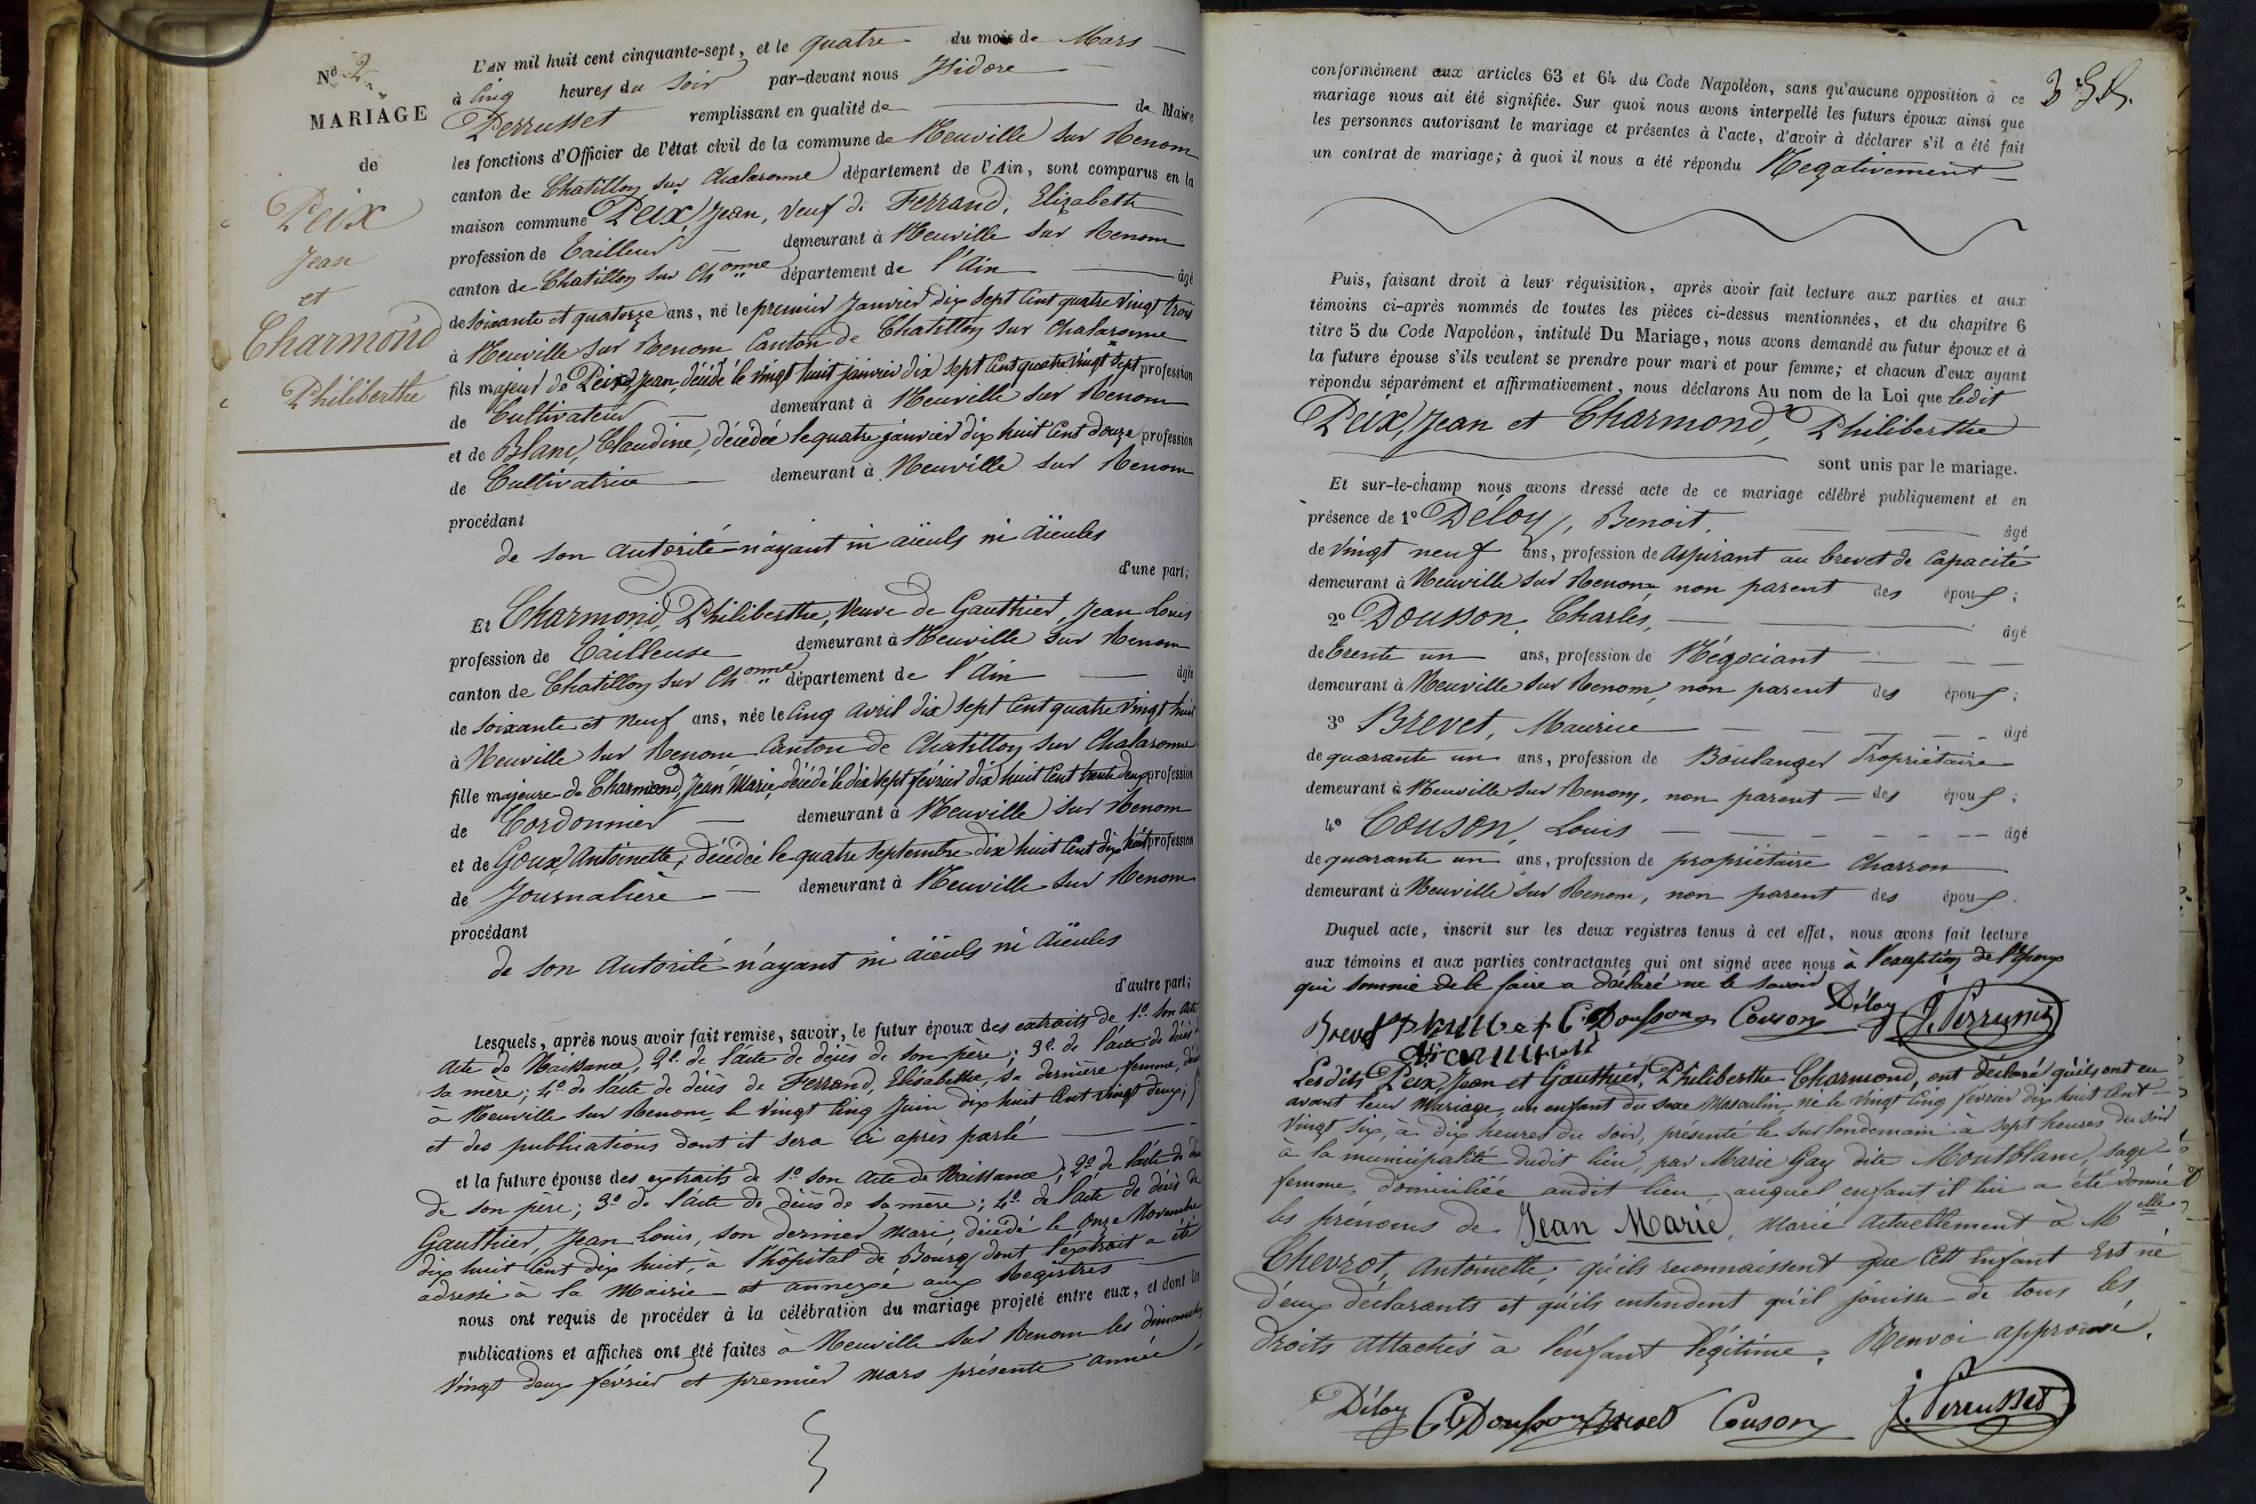 No 2
MARIAGE
de
Peix
Jean
et
Charmond
Philiberthe
L'AN mil huit cent cinquante-sept, et le quatre du mois de Mars
à cinq heures du soir par-devant nous Isidore
Perrusset remplissant en qualité de de Maire
les fonctions d'Officier de l'état civil de la commune de Neuville sur Renom
canton de Chatillon sur Chalaronne département de l'Ain, sont comparus en la
maison commune Peix, Jean, Veuf de Ferrand, Elizabeth
profession de Tailleur demeurant à Neuville sur Renom
canton de Chatillon sur Chonne département de l'Ain âgé
de soixante et quatorze ans, né le premier Janvier dix sept cent quatre vingt trois
à Neuville sur Renom Canton de Chatillon sur Chalaronne
fils majeur de Peix, Jean, décédé le vingt huit janvier dix sept cent quatre vingt sept profession
de Cultivateur demeurant à Neuville sur Renom
et de Blanc, Claudine, décédée le quatre janvier dix huit cent douze profession
de Cultivatrice demeurant à Neuville sur Renom
procédant
de son autorité n'ayant ni aïeuls ni aïeules
d'une part;
Et Charmond, Philiberthe, Veuve de Gauthier, Jean Louis
profession de Tailleuse demeurant à Neuville sur Renom
canton de Chatillon sur Chonne département de l'Ain âgée
de soixante et neuf ans, née le cinq avril dix sept cent quatre vingt huit
à Neuville sur Renom Canton de Chatillon sur Chalaronne
fille majeure de Charmond, Jean Marie, décédé le dix sept février dix huit cent trente deux profession
de Cordonnier demeurant à Neuville sur Renom
et de Goux, Antoinette, décédée le quatre septembre dix huit cent dix huit profession
de Journalière demeurant à Neuville sur Renom
procédant
de son autorité n'ayant ni aïeuls ni aïeules
d'autre part;
Lesquels, après nous avoir fait remise, savoir, le futur époux des extraits de 1o. son acte
acte de Naissance, 2o. de l'acte de décès de son père; 3o. de l'acte de décès
sa mère; 4o. de l'acte de décès de Ferrand, Elisabethe, sa dernière femme, décédée
à Neuville sur Renom le vingt cinq Juin dix huit cent vingt deux;
et des publications dont il sera ci après parlé
et la future épouse des extraits de 1o. son acte de Naissance; 2o. de l'acte de décès
de son père; 3o. de l'acte de décès de sa mère; 4o. de l'acte de décès de
Gauthier, Jean Louis, son dernier mari, décédé le onze Novembre
dix huit cent dix huit, à l'hôpital de Bourg dont l'extrait a été
adressé à la Mairie et annexé aux Registres
nous ont requis de procéder à la célébration du mariage projeté entre eux, et dont les
publications et affiches ont été faites à Neuville sur Renom les dimanches
vingt deux février et premier mars présente année,
conformément aux articles 63 et 64 du Code Napoléon, sans qu'aucune opposition à ce
mariage nous ait été signifiée. Sur quoi nous avons interpellé les futurs époux ainsi que
les personnes autorisant le mariage et présentes à l'acte, d'avoir à déclarer s'il a été fait
un contrat de mariage; à quoi il nous a été répondu Négativement
Puis, faisant droit à leur réquisition, après avoir fait lecture aux parties et aux
témoins ci-après nommés de toutes les pièces ci-dessus mentionnées, et du chapitre 6
titre 5 du Code Napoléon, intitulé Du Mariage, nous avons demandé au futur époux et à
la future épouse s'ils veulent se prendre pour mari et pour femme; et chacun d'eux ayant
répondu séparément et affirmativement, nous déclarons Au nom de la Loi que ledit
Peix, Jean et Charmond, Philiberthe
sont unis par le mariage.
Et sur-le-champ nous avons dressé acte de ce mariage célébré publiquement et en
présence de 1o Déloy, Benoit, âgé
de vingt neuf ans, profession de aspirant au brevet de capacité
demeurant à Neuville sur Renom, non parent des époux;
2o Dousson, Charles, âgé
de trente un ans, profession de Négociant
demeurant à Neuville sur Renom, non parent des époux;
3o Brevet, Maurice âgé
de quarante un ans, profession de Boulanger Propriétaire
demeurant à Neuville sur Renom, non parent des époux;
4o Couson, Louis âgé
de quarante un ans, profession de propriétaire Charron
demeurant à Neuville sur Renom, non parent des époux.
Duquel acte, inscrit sur les deux registres tenus à cet effet, nous avons fait lecture
aux témoins et aux parties contractantes qui ont signé avec nous à l'exception de l'époux
qui sommé de le faire a déclaré ne le savoir
Brevet C. Dousson Couson Déloy J. Perrusset
Lesdits Peix, Jean et Gauthier, Philiberthe Charmond, ont déclaré qu'ils ont eu
avant leur Mariage, un enfant du sexe Masculin, né le vingt cinq février dix huit cent
vingt six, à dix heures du soir, présenté le surlendemain à sept heures du soir
à la municipalité dudit lieu, par Marie Gay dite Montblanc, sage
femme, domiciliée audit lieu, auquel enfant il lui a été donné
les prénoms de Jean Marie, Marié actuellement à Melle
Chevrot, Antoinette, qu'ils reconnaissent que cett enfant est né
d'eux déclarants et qu'ils entendent qu'il jouisse de tous les
droits attachés à l'enfant légitime. Renvoi approuvé.
Déloy C Dousson Brevet Couson J. Perrusset